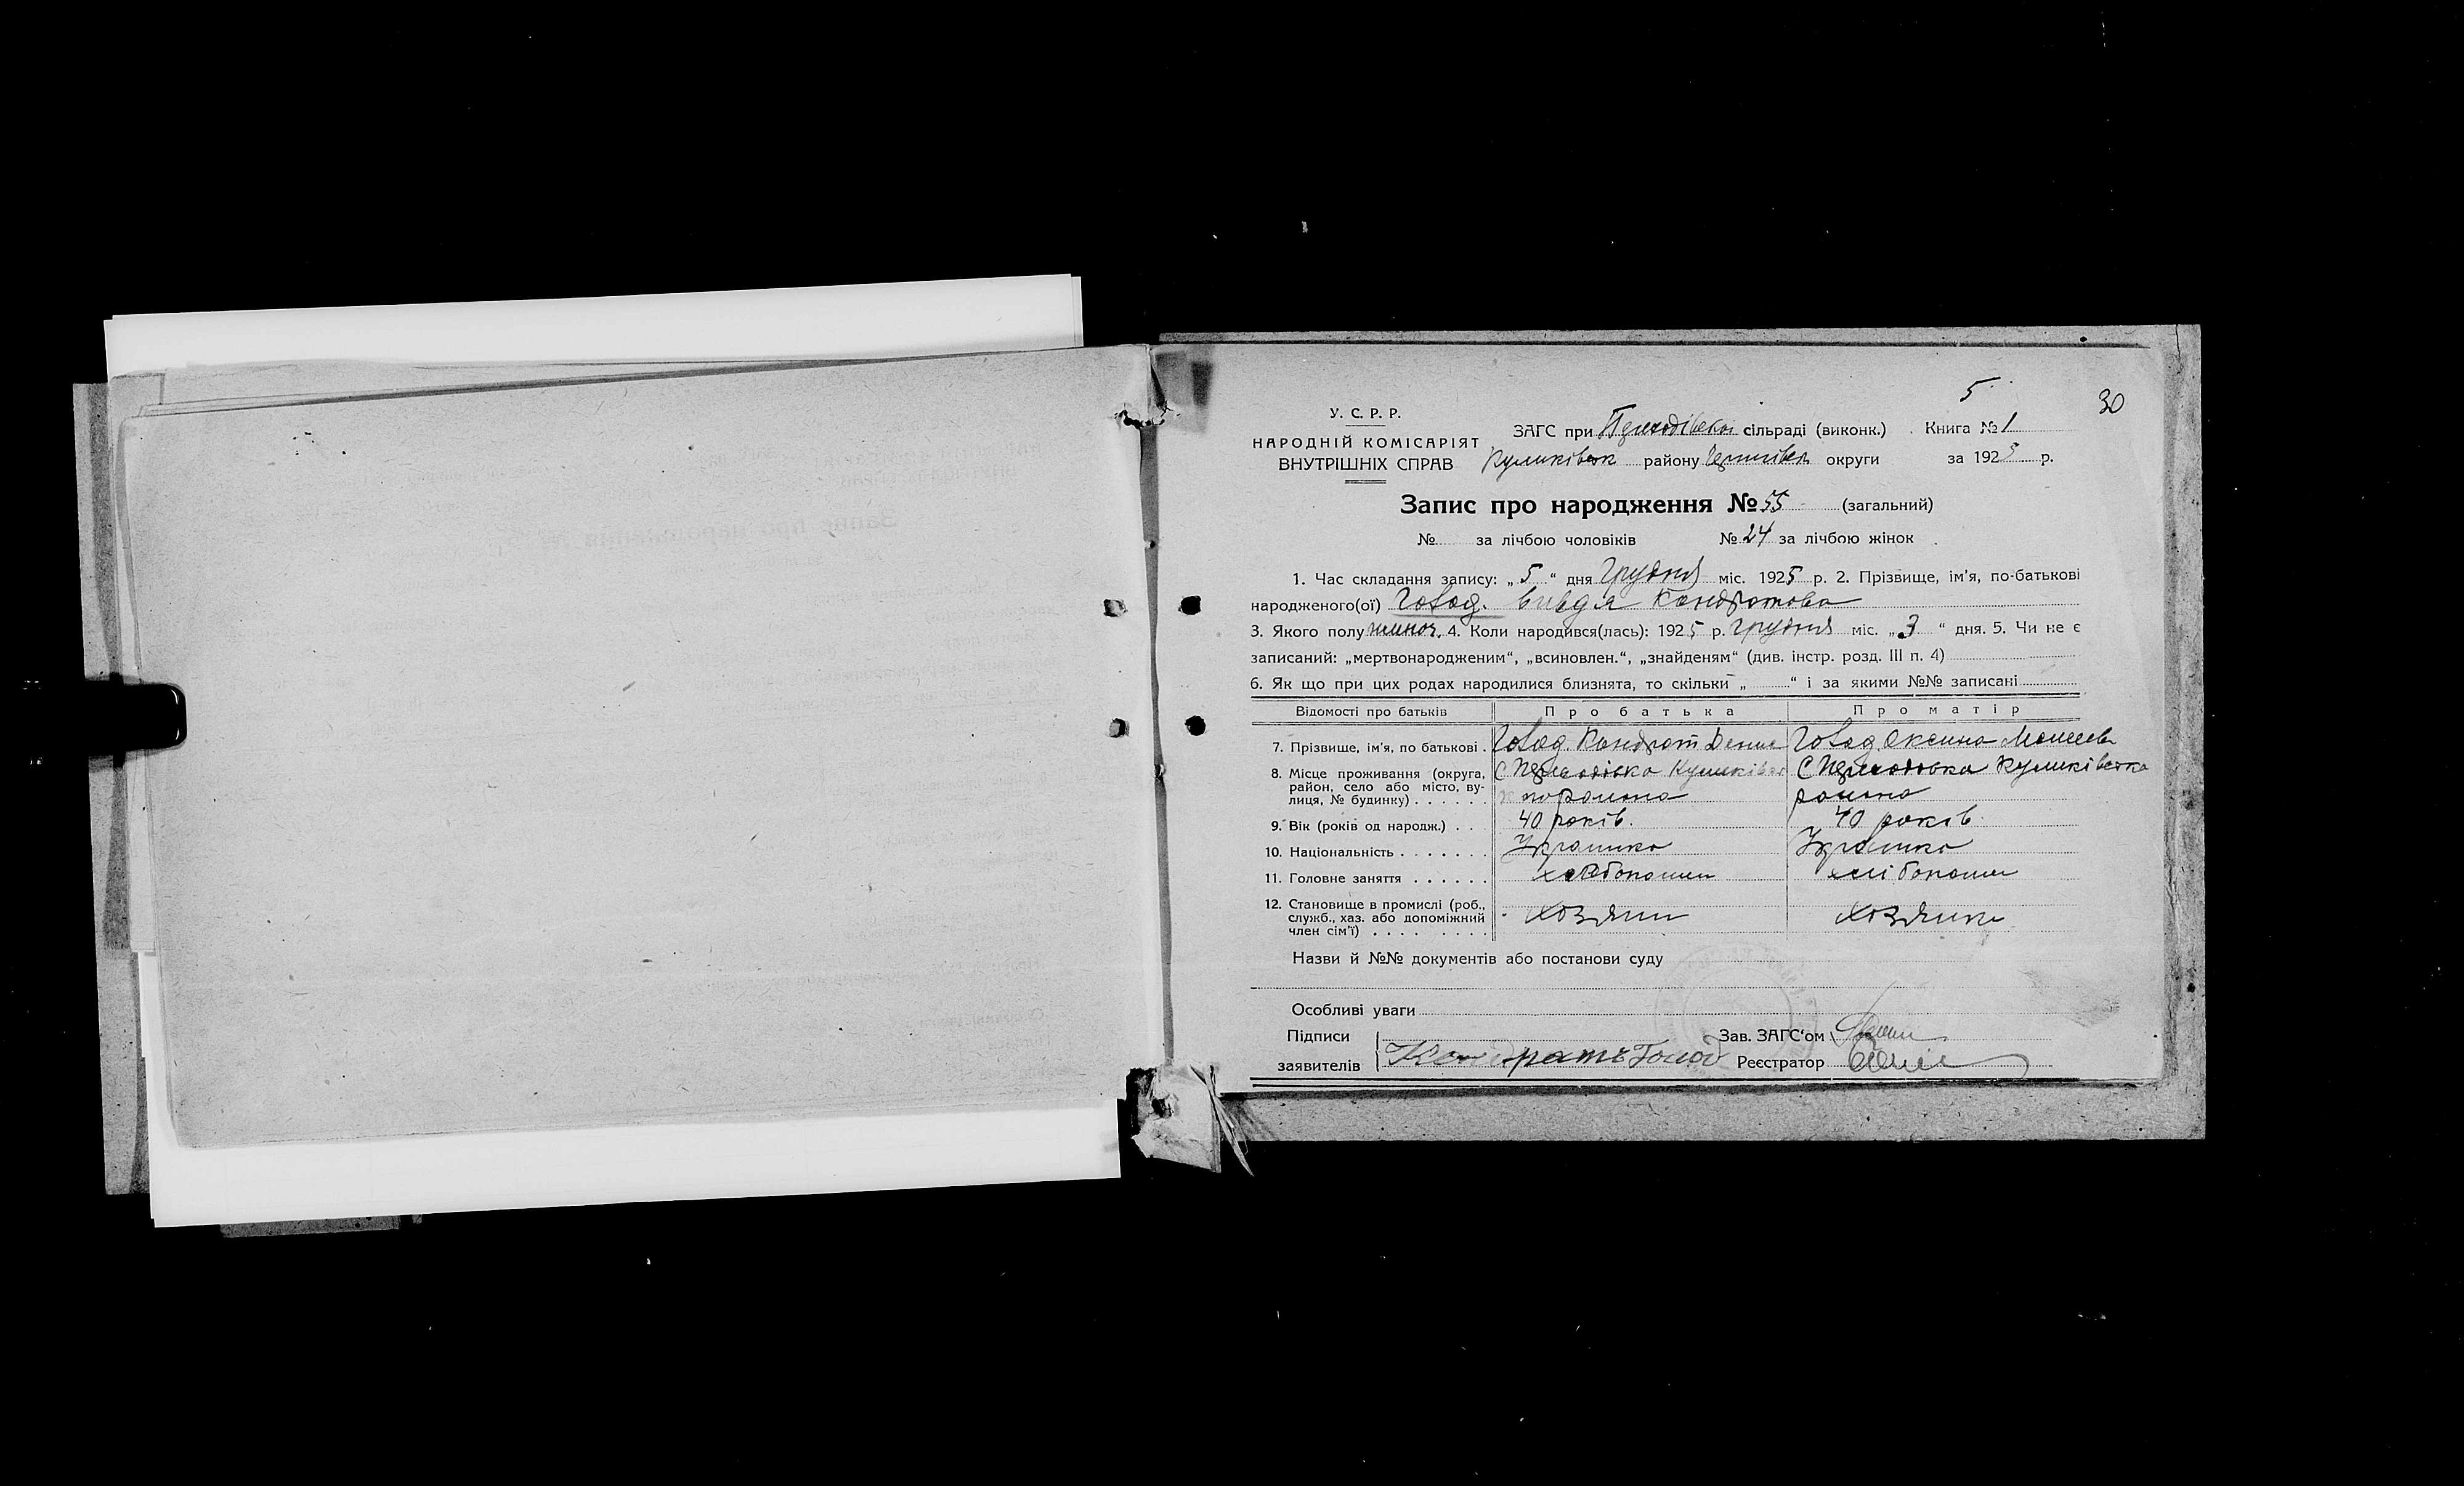 5
30
У. С. Р. Р.
НАРОДНІЙ КОМІСАРІЯТ
ВНУТРІШНІХ СПРАВ
ЗАГС при сільраді (виконк.) Книга № 1
Куликівськ району Чернігівськ округи за 1925 р.
Запис про народження № 55 (загальний)
№ за лічбою чоловіків № 24 за лічбою жінок
1. Час складання запису: „5“ дня Грудня міс. 1925 р. 2. Прізвище, ім'я, по-батькові
народженого(ої) Кондратова
3. Якого полу жіноч. 4. Коли народився(лась): 1925 р. Грудня міс. „3“ дня. 5. Чи не є
записаний: „мертвонародженим“, „всиновлен.“, „знайденям“ (див. інстр. розд. III п. 4)
6. Як що при цих родах народилися близнята, то скільки „ “ і за якими №№ записані
Відомості про батьків Про батька Про матір
7. Прізвище, ім'я, по батькові Кондрат Оксина
8. Місце проживання (округа,
район, село або місто, ву-
лиця, № будинку) району
9. Вік (років од народж.) 40 років. 40 років
10. Національність
11. Головне заняття
12. Становище в промислі (роб.,
служб., хаз. або допоміжний
член сім'ї) Хозяин Хозяика
Назви й №№ документів або постанови суду
Особливі уваги
Підписи Зав. ЗАГС'ом
заявителів Кондратъ Реєстратор